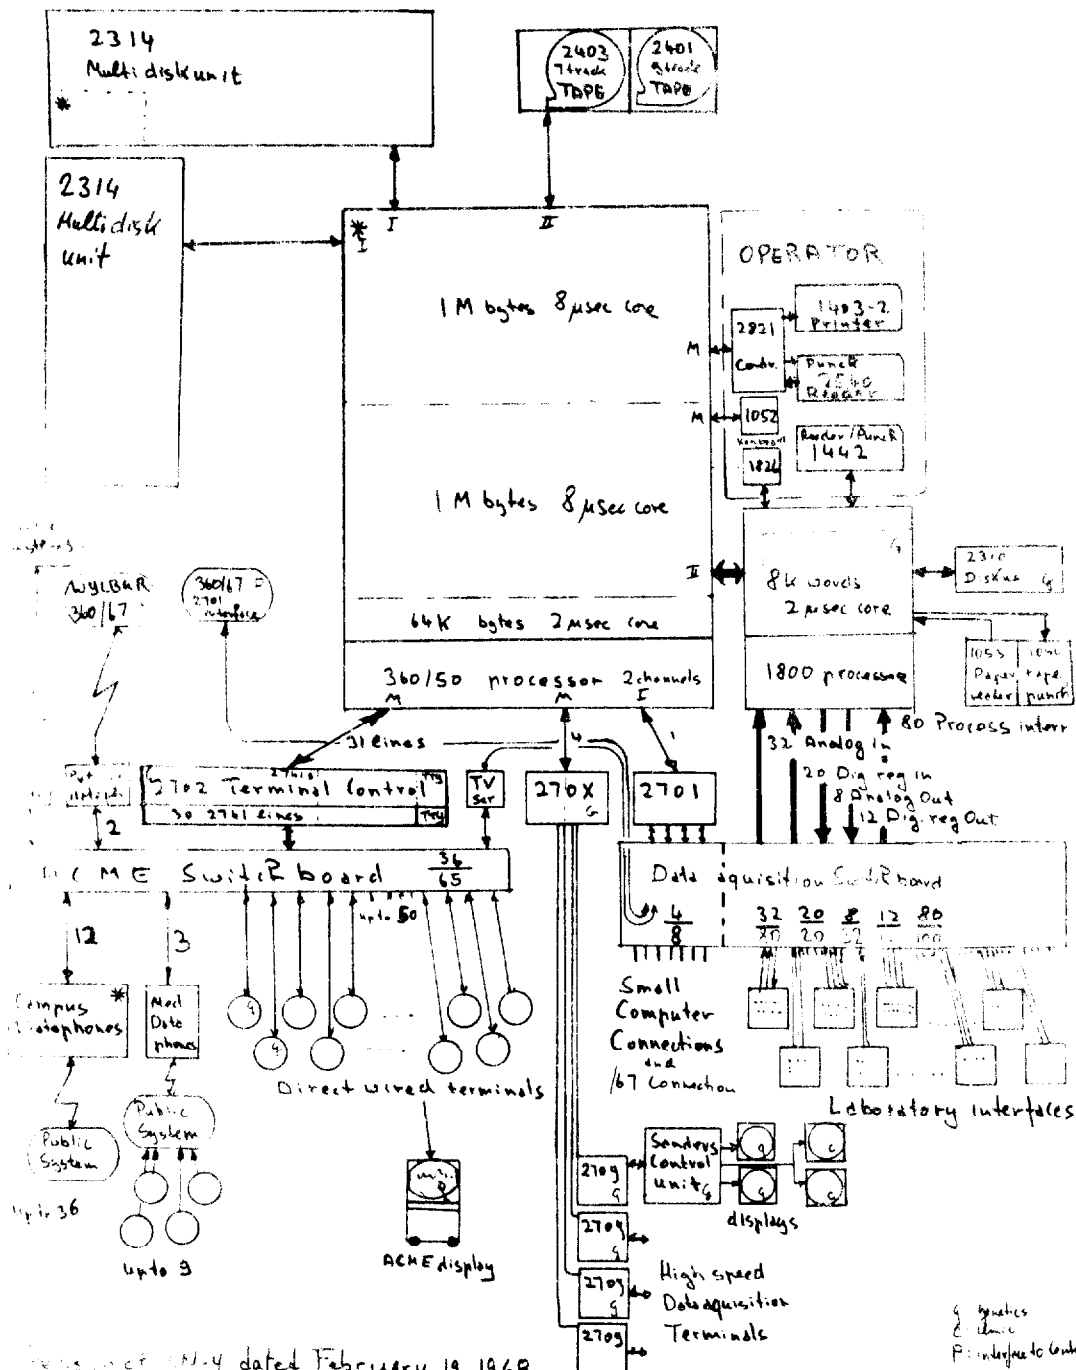 2314
Multi disk unit
*
2403
7 track
TAPE
2401
9 track
TAPE
2314
Multi disk
unit
I
II
*
I
1 M bytes 8 µsec core
M
M
1 M bytes 8 µsec core
II
64K bytes 2 µsec core
360/50 processor 2 channels
M
M
I
OPERATOR
2821
Contr.
1403-2
Printer
Punch
2540
Reader
1052
1826
Reader/Punch
1442
8K words
2 µsec core
1800 processor
2310
Disk
G
1053
Paper
reader
tape
punch
80 Process interr
32 Analog in
20 Dig reg in
8 Analog Out
12 Dig. reg Out
WYLBUR
360/67
360/67
2701
interface
31 lines
4
1
2702 Terminal Control
30 2741 lines
TTY
TV
Ser
270X
G
2701
2
ACME Switch board 36
65
up to 50
Data aquisition Switch board
4
8
32
20
20
8
12
80
12
3
Campus
Dataphones
*
Med
Data
phones
G
G
Direct wired terminals
Small
Computer
Connections
and
/67 Connection
Laboratory interfaces
Public
System
Public
System
up to 36
up to 9
ACME display
2709
G
Sanders
Control
unit G
G
C
G
G
displays
2709
G
2709
G
2709
High speed
Data aquisition
Terminals
G genetics
C clinic
P: interface to
dated February 19 1968